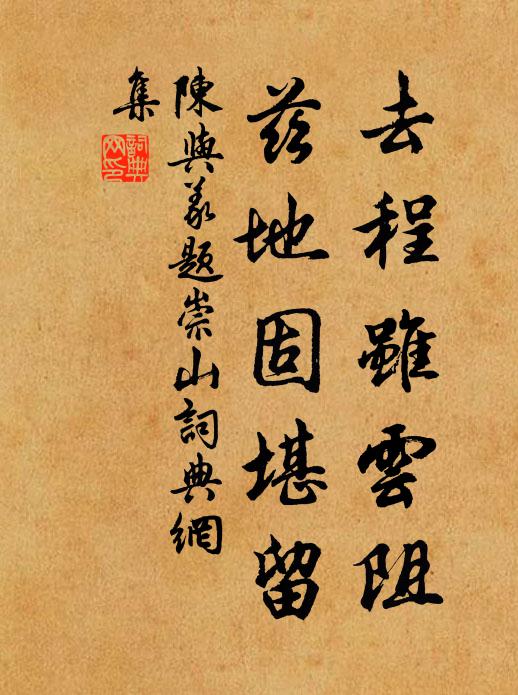 去程雖雲阻
茲地固堪留
陳與義題崇山詞典網
集
詞典
网印